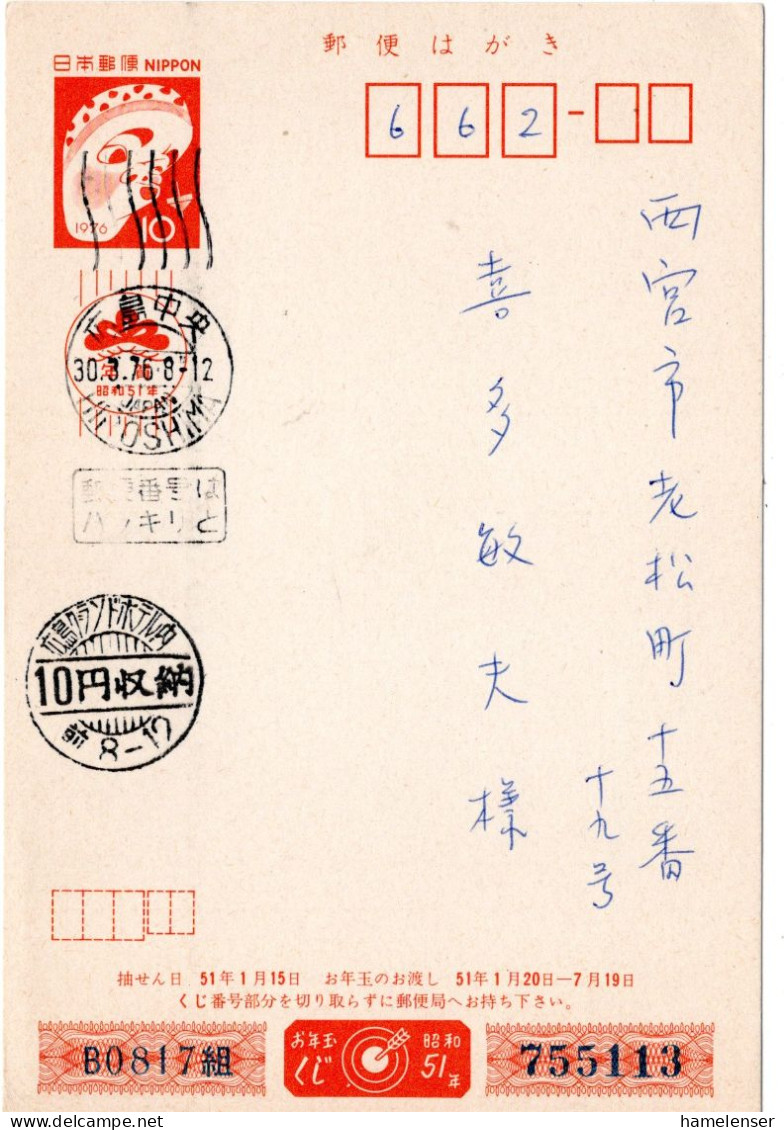 郵便はがき
日本郵便 NIPPON
662-
1976
10
西宮市老松町十五番
十九号
喜多敏夫様
広島中央
30.3.76.8-12
昭和51年
JAPAN
HIROSHIMA
郵便番号は
ハッキリと
広島グランドホテル内
10円収納
前8-12
抽せん日 51年1月15日 お年玉のお渡し 51年1月20日—7月19日
くじ番号部分を切り取らずに郵便局へお持ち下さい。
B0817組
お年玉くじ
昭和51年
755113
hamelenser